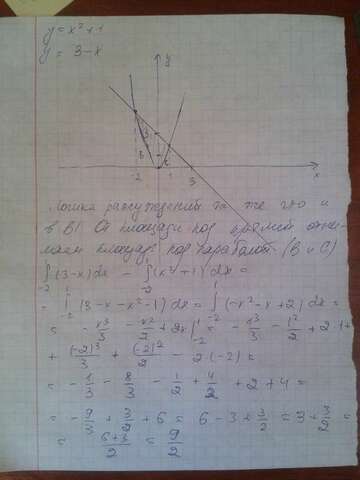 y = x² + 1
y = 3 - x
y
-2
1
3
x
Логика рассуждений та же что и
в В1. От площади под прямой отни-
маем площадь под параболой (В и С)
∫₋₂¹ (3-x)dx - ∫₋₂¹ (x²+1)dx =
= ∫₋₂¹ (3 - x - x² - 1) dx = ∫₋₂¹ (-x² - x + 2) dx =
= - x³/3 - x²/2 + 2x |₋₂¹ = - 1³/3 - 1²/2 + 2·1 +
+ (-2)³/3 + (-2)²/2 - 2(-2) =
= - 1/3 - 8/3 - 1/2 + 4/2 + 2 + 4 =
= - 9/3 + 3/2 + 6 = 6 - 3 + 3/2 = 3 + 3/2 =
= (6+3)/2 = 9/2